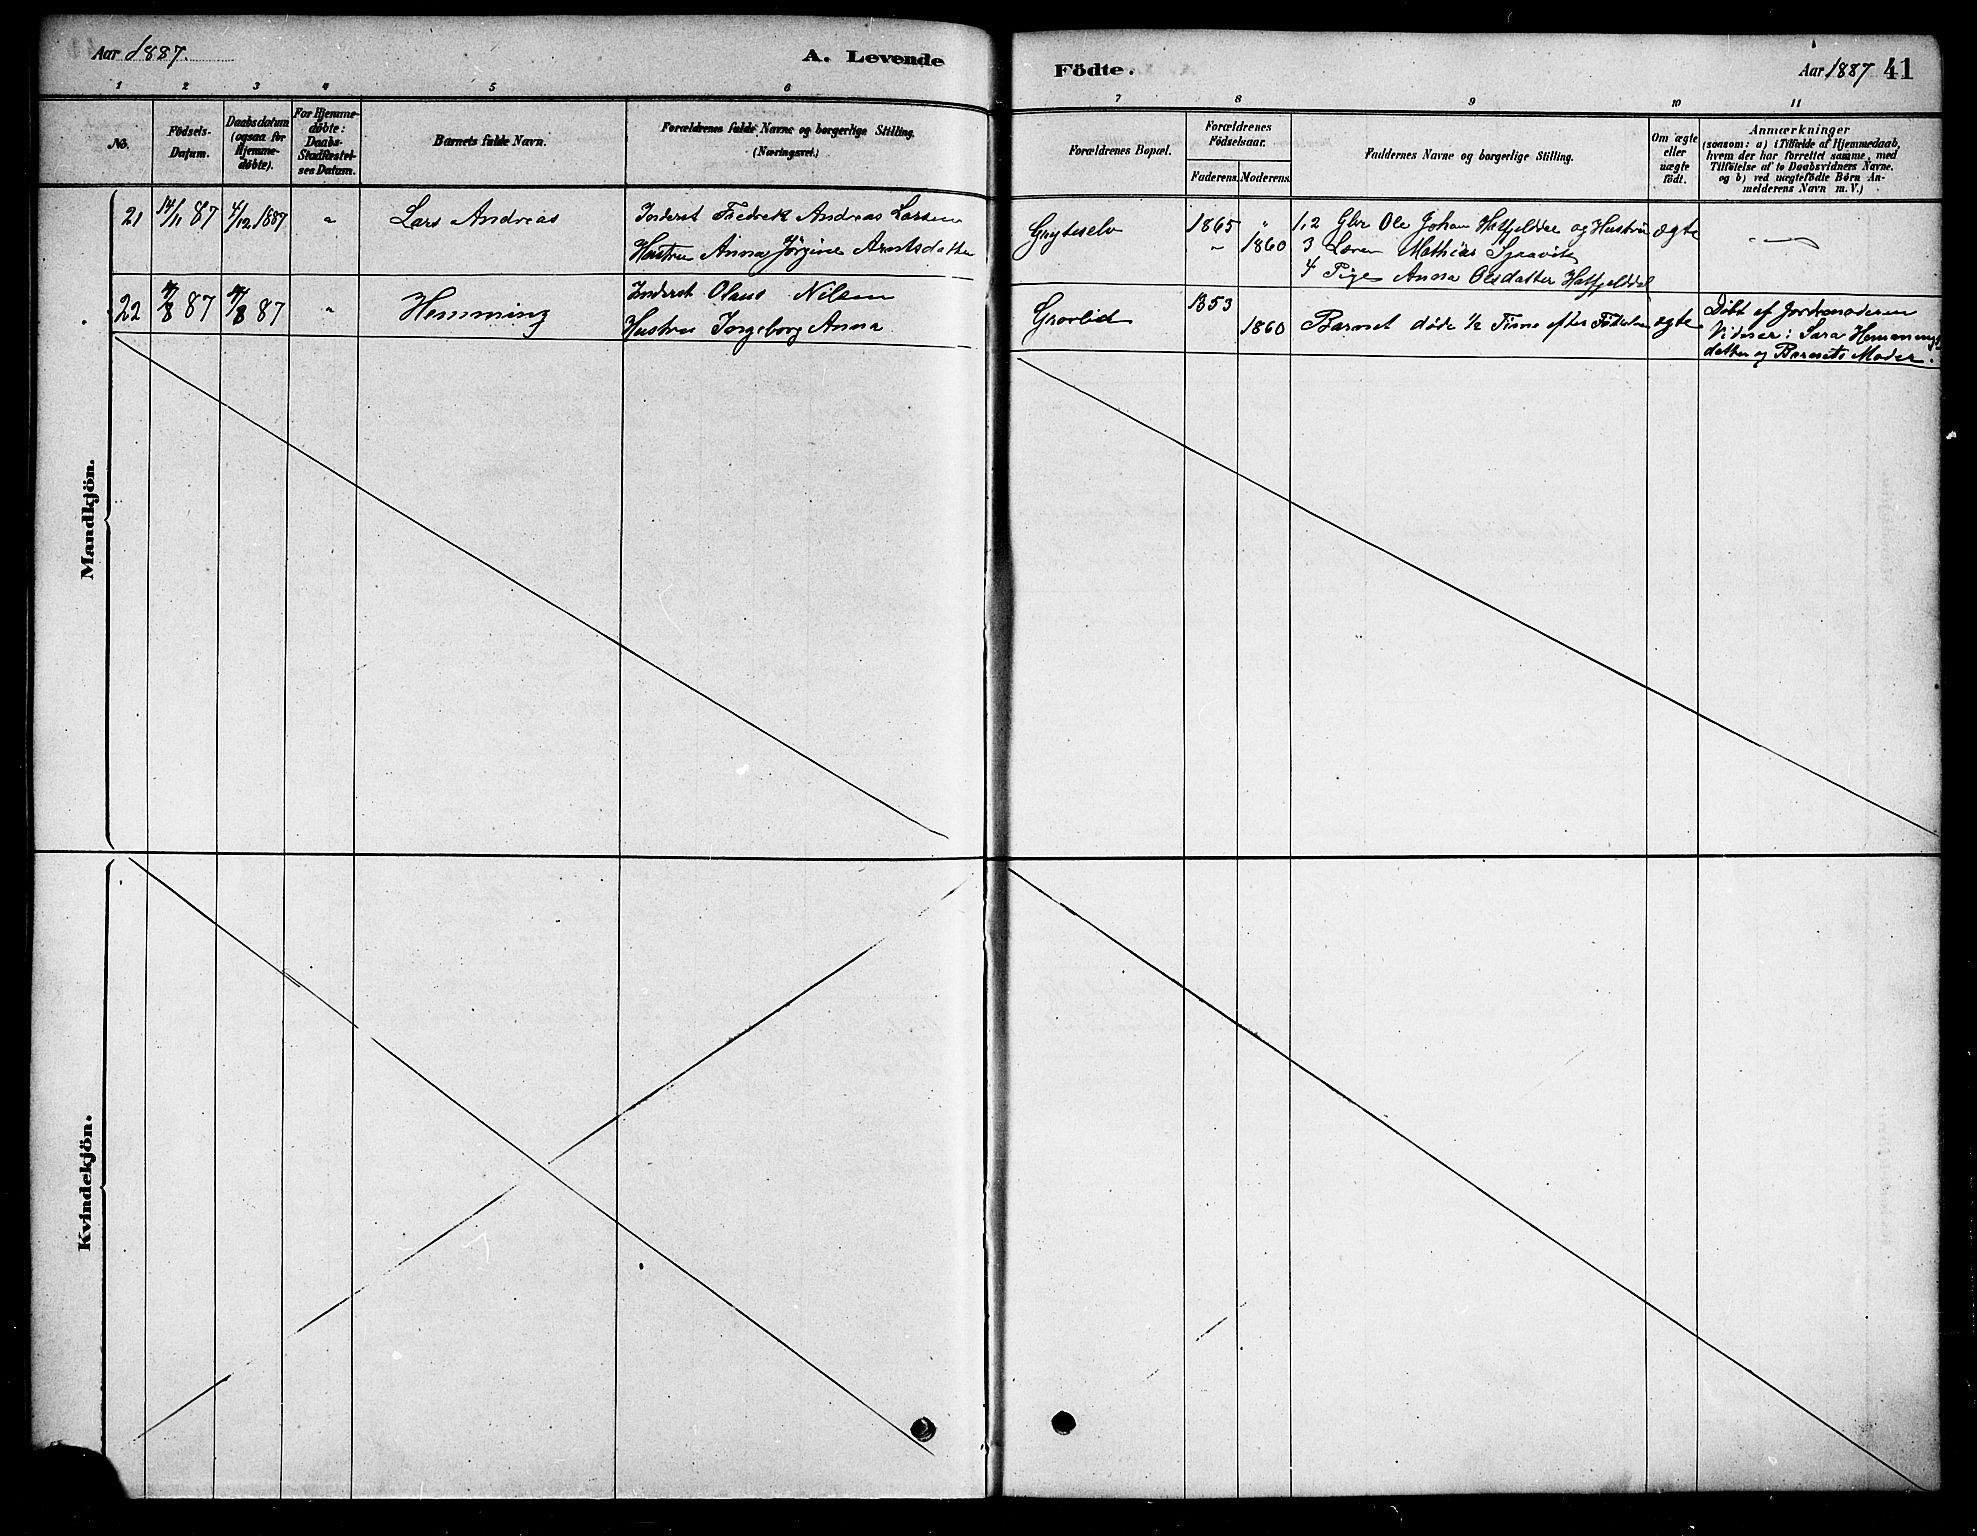 Aar 1887.
A. Levende
Födte.
Aar 1887 41
1 2 3 4 5 6 7 8 9 10 11
No.
Födsels-
Datum.
Daabsdatum
(ogsaa for
Hjemme-
døbte).
For Hjemme-
døbte:
Daabs-
Stadfæstel-
ses Datum.
Barnets fulde Navn.
Forældrenes fulde Navne og borgerlige Stilling.
(Næringsvei.)
Forældrenes Bopæl.
Forældrenes
Fødselsaar.
Faderens. Moderens.
Faddernes Navne og borgerlige Stilling.
Om ægte
eller
uægte
født.
Anmærkninger
(saasom: a) i Tilfælde af Hjemmedaab,
hvem der har forrettet samme, med
Tilføielse af to Daabsvidners Navne.
og b) ved uægtefødte Børn An-
melderens Navn m. V.)
Mandkjön.
21 14/11 87 4/12 1887 " Lars Andreas
Inderst Fredrik Andreas Larsen
Hustru Anna Jørgine Arntsdatter
1865 "
" 1860
1,2 Gbr Ole Johan Hatfjelddal og Hustru
3 Søren Mathias
4 Pige Anna Olsdatter Hatfjelddal
ægte
22 87 87 " Hemming
Inderst Olaus Nilsen
Hustru Ingeborg Anna
Grovlid
1853
1860
Barnet døde 1/2 Time efter Fødselen
ægte
Døbt af Jordmoderen
Vidner: Sara Hemmings
datter og Barnets Moder.
Kvindekjön.